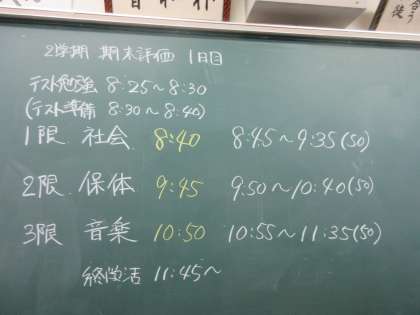 2学期 期末評価 1日目
テスト勉強 8:25～8:30
(テスト準備 8:30～8:40)
1限 社会 8:40 8:45～9:35(50)
2限 保体 9:45 9:50～10:40(50)
3限 音楽 10:50 10:55～11:35(50)
終徴活 11:45～